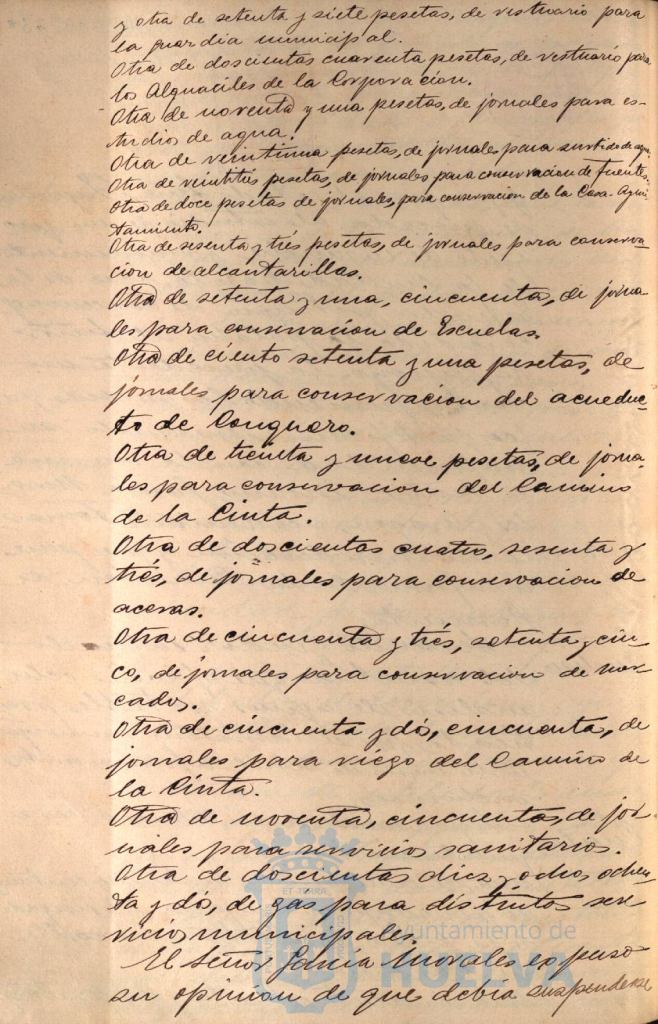 y otra de setenta y siete pesetas, de vestuario para
la guardia municipal.
Otra de doscientas cuarenta pesetas, de vestuario para
los Alguaciles de la Corporacion.
Otra de noventa y una pesetas, de jornales para es-
tudios de agua.
Otra de veintiuna pesetas, de jornales para surtido de agua.
Otra de veintitrés pesetas, de jornales para conservacion de Fuentes.
Otra de doce pesetas de jornales, para conservacion de la Casa-Ayun-
tamiento.
Otra de sesenta y trés pesetas, de jornales para conserva-
cion de alcantarillas.
Otra de setenta y una, cincuenta, de jorna-
les para conservacion de Escuelas.
Otra de ciento setenta y una pesetas, de
jornales para conservacion del acueduc-
to de Conquero.
Otra de treinta y nueve pesetas, de jorna-
les para conservacion del Camino
de la Cinta.
Otra de doscientas cuatro, sesenta y
trés, de jornales para conservacion de
aceras.
Otra de cincuenta y trés, setenta y cin-
co, de jornales para conservacion de mer-
cados.
Otra de cincuenta y dós, cincuenta, de
jornales para riego del Camino de
la Cinta.
Otra de noventa, cincuenta, de jor-
nales para servicios sanitarios.
Otra de doscientas diez y ocho, ochen-
ta y dós, de gas para distintos ser-
vicios municipales.
El Señor García Morales expuso
su opinion de que debia suspenderse
ET TERRÆ
Ayuntamiento de
HUELVA